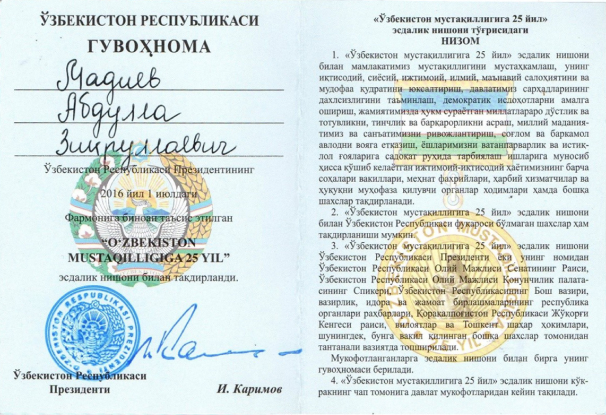 ЎЗБЕКИСТОН РЕСПУБЛИКАСИ
ГУВОҲНОМА
Мадиев
Абдулла
Зикруллаевич
Ўзбекистон Республикаси Президентининг
2016 йил 1 июлдаги
Фармонига биноан таъсис этилган
“O‘ZBEKISTON
MUSTAQILLIGIGA 25 YIL”
эсдалик нишони билан тақдирланди.
Ўзбекистон Республикаси
Президенти
И. Каримов
«Ўзбекистон мустақиллигига 25 йил»
эсдалик нишони тўғрисидаги
НИЗОМ
1. «Ўзбекистон мустақиллигига 25 йил» эсдалик нишони
билан мамлакатимиз мустақиллигини мустаҳкамлаш, унинг
иқтисодий, сиёсий, ижтимоий, илмий, маънавий салоҳиятини ва
мудофаа қудратини юксалтириш, давлатимиз сарҳадларининг
дахлсизлигини таъминлаш, демократик ислоҳотларни амалга
ошириш, жамиятимизда ҳукм сураётган миллатлараро дўстлик ва
тотувликни, тинчлик ва барқарорликни асраш, миллий мадания-
тимиз ва санъатимизни ривожлантириш, соғлом ва баркамол
авлодни вояга етказиш, ёшларимизни ватанпарварлик ва истиқ-
лол ғояларига садоқат руҳида тарбиялаш ишларига муносиб
ҳисса қўшиб келаётган ижтимоий-иқтисодий ҳаётимизнинг барча
соҳалари вакиллари, меҳнат фахрийлари, ҳарбий хизматчилар ва
ҳуқуқни муҳофаза қилувчи органлар ходимлари ҳамда бошқа
шахслар тақдирланади.
2. «Ўзбекистон мустақиллигига 25 йил» эсдалик нишони
билан Ўзбекистон Республикаси фуқароси бўлмаган шахслар ҳам
тақдирланиши мумкин.
3. «Ўзбекистон мустақиллигига 25 йил» эсдалик нишони
Ўзбекистон Республикаси Президенти ёки унинг номидан
Ўзбекистон Республикаси Олий Мажлиси Сенатининг Раиси,
Ўзбекистон Республикаси Олий Мажлиси Қонунчилик палата-
сининг Спикери, Ўзбекистон Республикасининг Бош вазири,
вазирлик, идора ва жамоат бирлашмаларининг республика
органлари раҳбарлари, Қорақалпоғистон Республикаси Жўқорғи
Кенгеси раиси, вилоятлар ва Тошкент шаҳар ҳокимлари,
шунингдек, бунга вакил қилинган бошқа шахслар томонидан
тантанали вазиятда топширилади.
Мукофотланганларга эсдалик нишони билан бирга унинг
гувоҳномаси берилади.
4. «Ўзбекистон мустақиллигига 25 йил» эсдалик нишони кўк-
ракнинг чап томонига давлат мукофотларидан кейин тақилади.